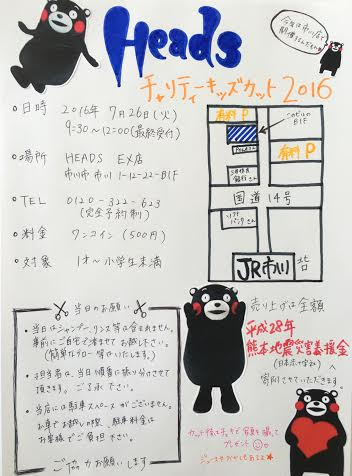 Heads
チャリティーキッズカット 2016
今年は市川店で
開催するんだモン
日時 2016年 7月26日(火)
9:30〜12:00(最終受付)
場所 HEADS EX店
市川市市川 1-12-22-B1F
TEL 0120-322-623
(完全予約制)
料金 ワンコイン (500円)
対象 1才〜小学生未満
有料P
このビルの
B1F
有料P
三井住友
銀行さん
国道14号
ソフト
バンクさん
JR市川
北口
当日のお願い
・当日はシャンプー、リンス等は含まれません。
事前にご自宅で済ませてお越し下さい。
(簡単なブロー等はいたします。)
・担当者は、当日順番に振り分けさせて
頂きます。ご了承下さい。
・当店には駐車スペースがございません。
お車でお越しの際、駐車料金は
お客様でご負担下さい。
ご協力お願いします
売り上げは全額
平成28年
熊本地震災害義援金
(日本赤十字社)へ
寄付させていただきます。
カット後はチェキで写真を撮って
プレゼント
ジュースやおやつもあるよ